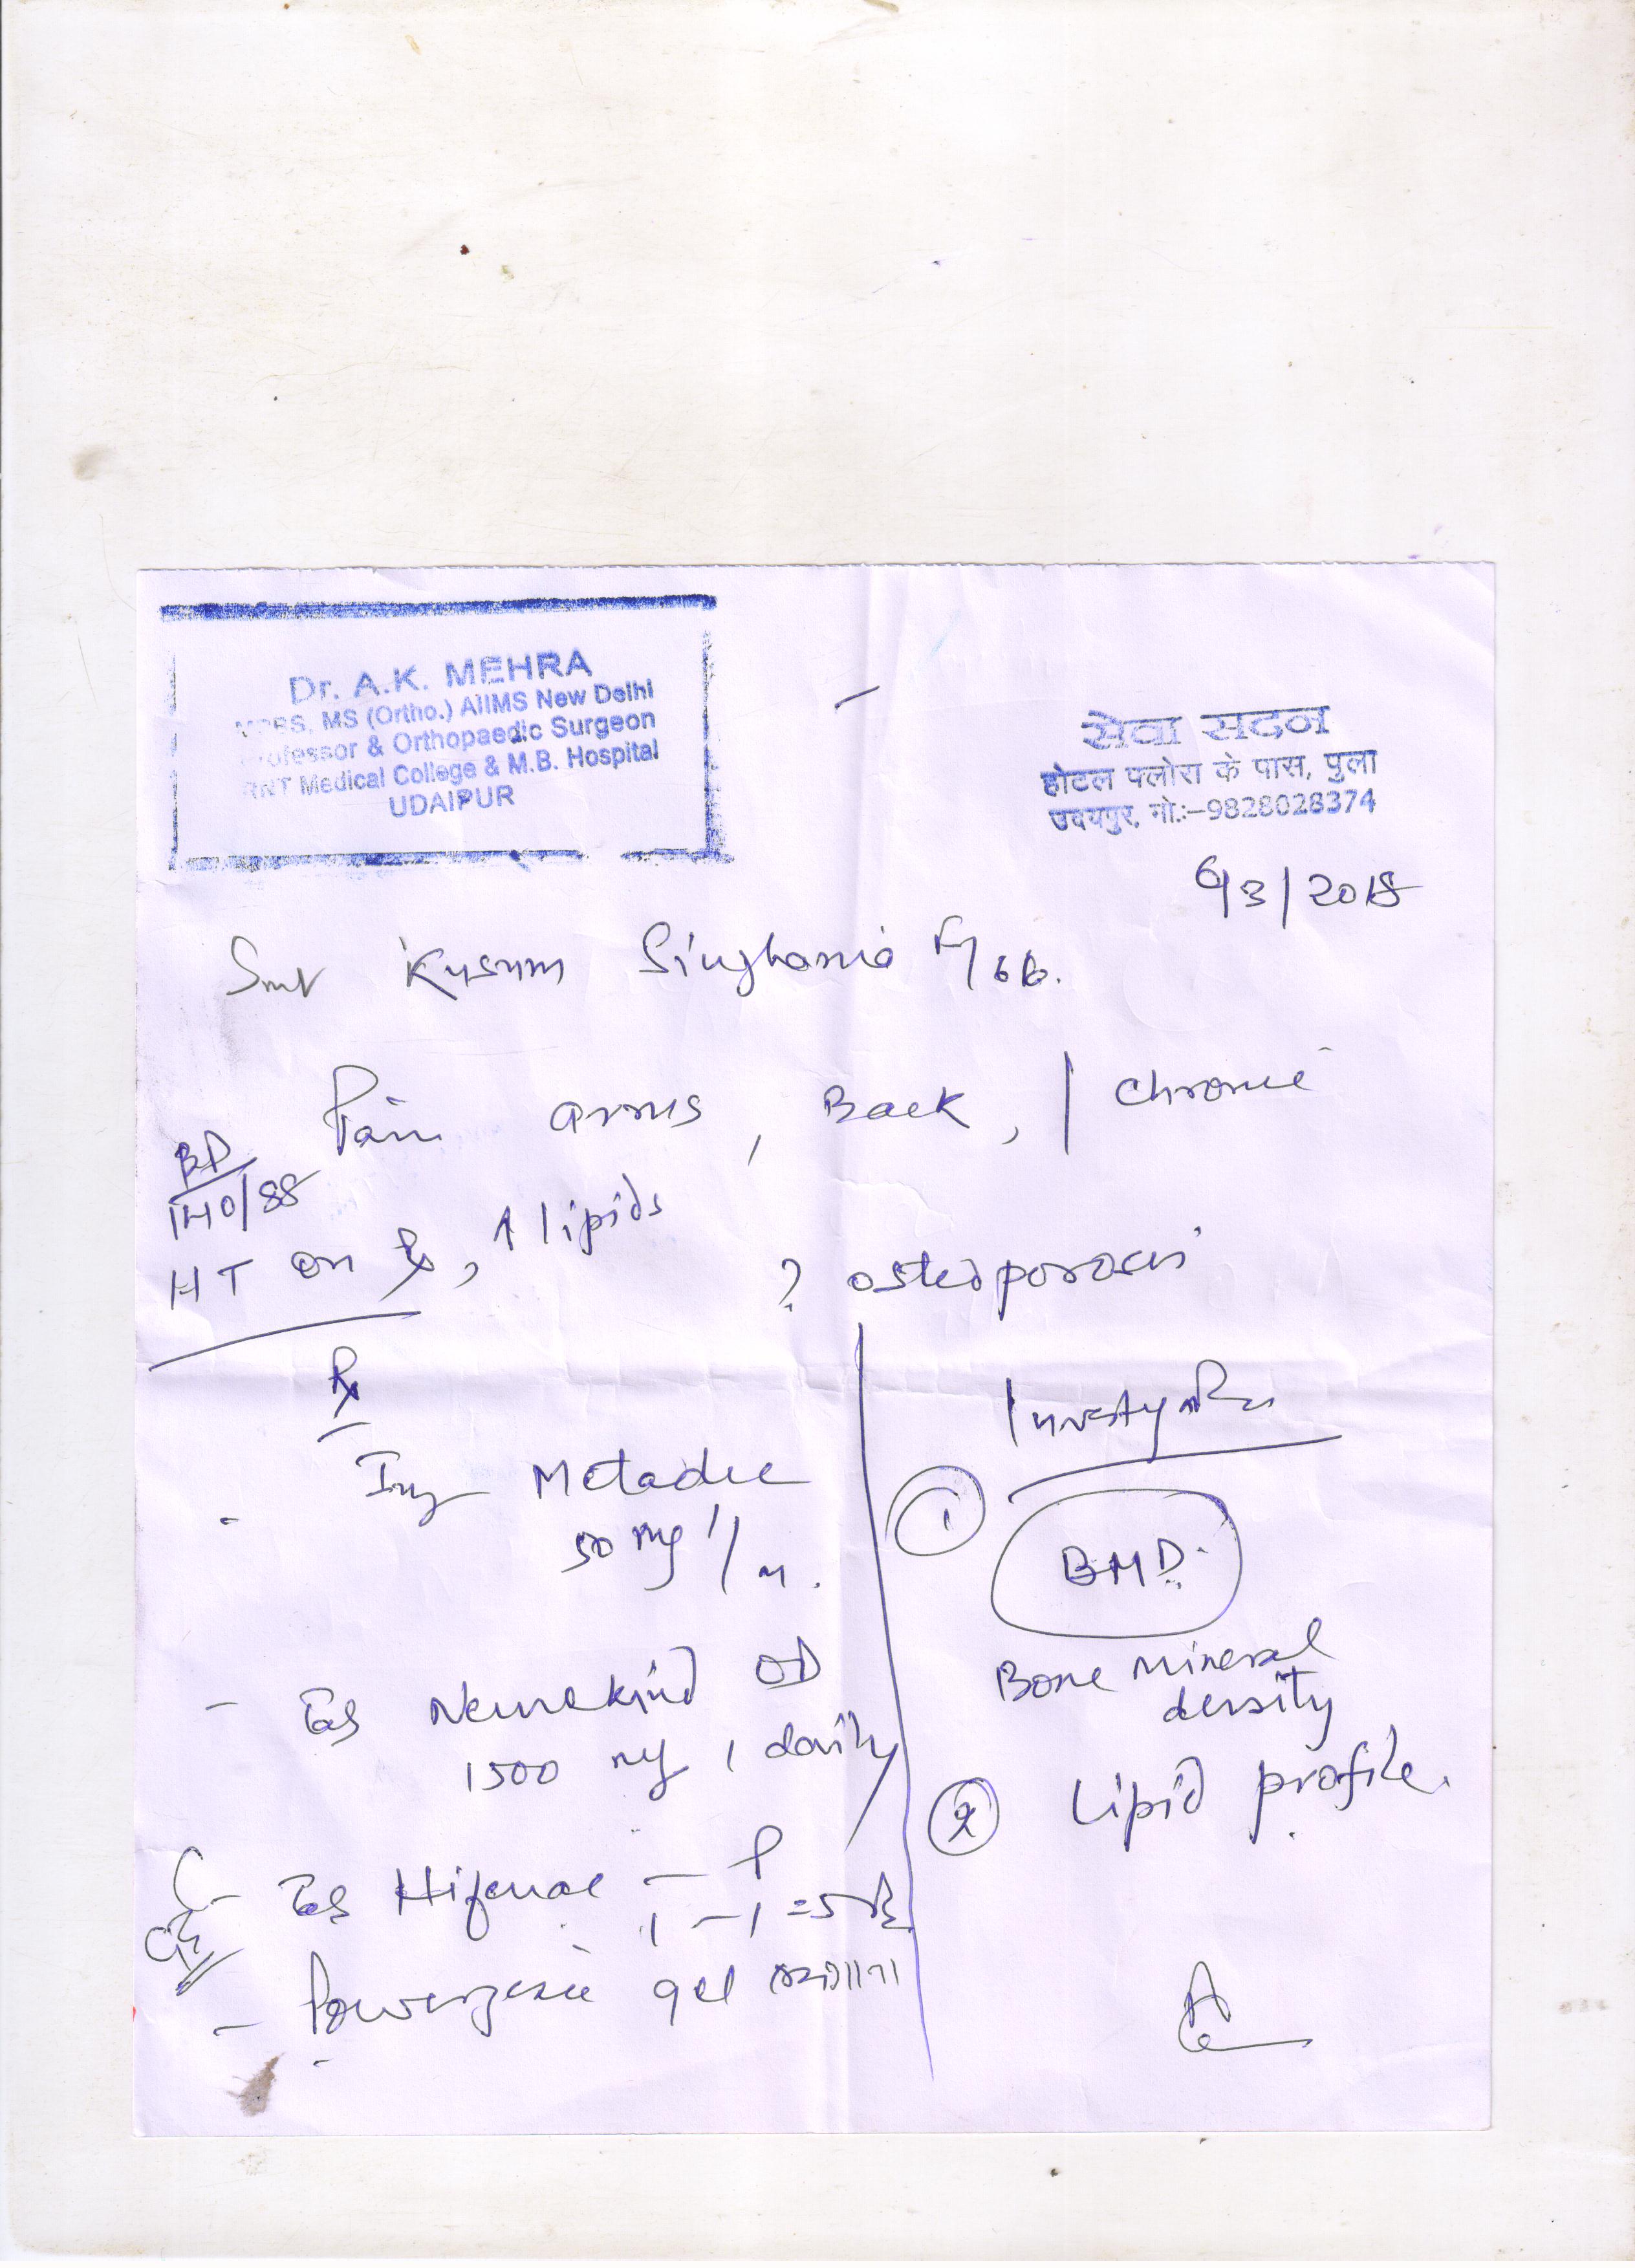 Dr. A.K. MEHRA
MBBS, MS (Ortho.) AIIMS New Delhi
Professor & Orthopaedic Surgeon
RNT Medical College & M.B. Hospital
UDAIPUR
सेवा सदन
होटल फ्लोरा के पास, पुला
उदयपुर, मो.:-9828028374
6/3/2018
Smt Kusum Singhania F/66.
Pain arms, Back, / chronic
BP
140/88
HT on Rx, ↑ lipids
? osteoporosis
Rx
- Inj Metadec
50 mg 1/m.
- Tab Neurokind OD
1500 mg 1 daily
- Tab Hifenac - P
1 - 1 = 5
- Powergesic gel
Investigation
① BMD.
Bone mineral
density
② Lipid profile.